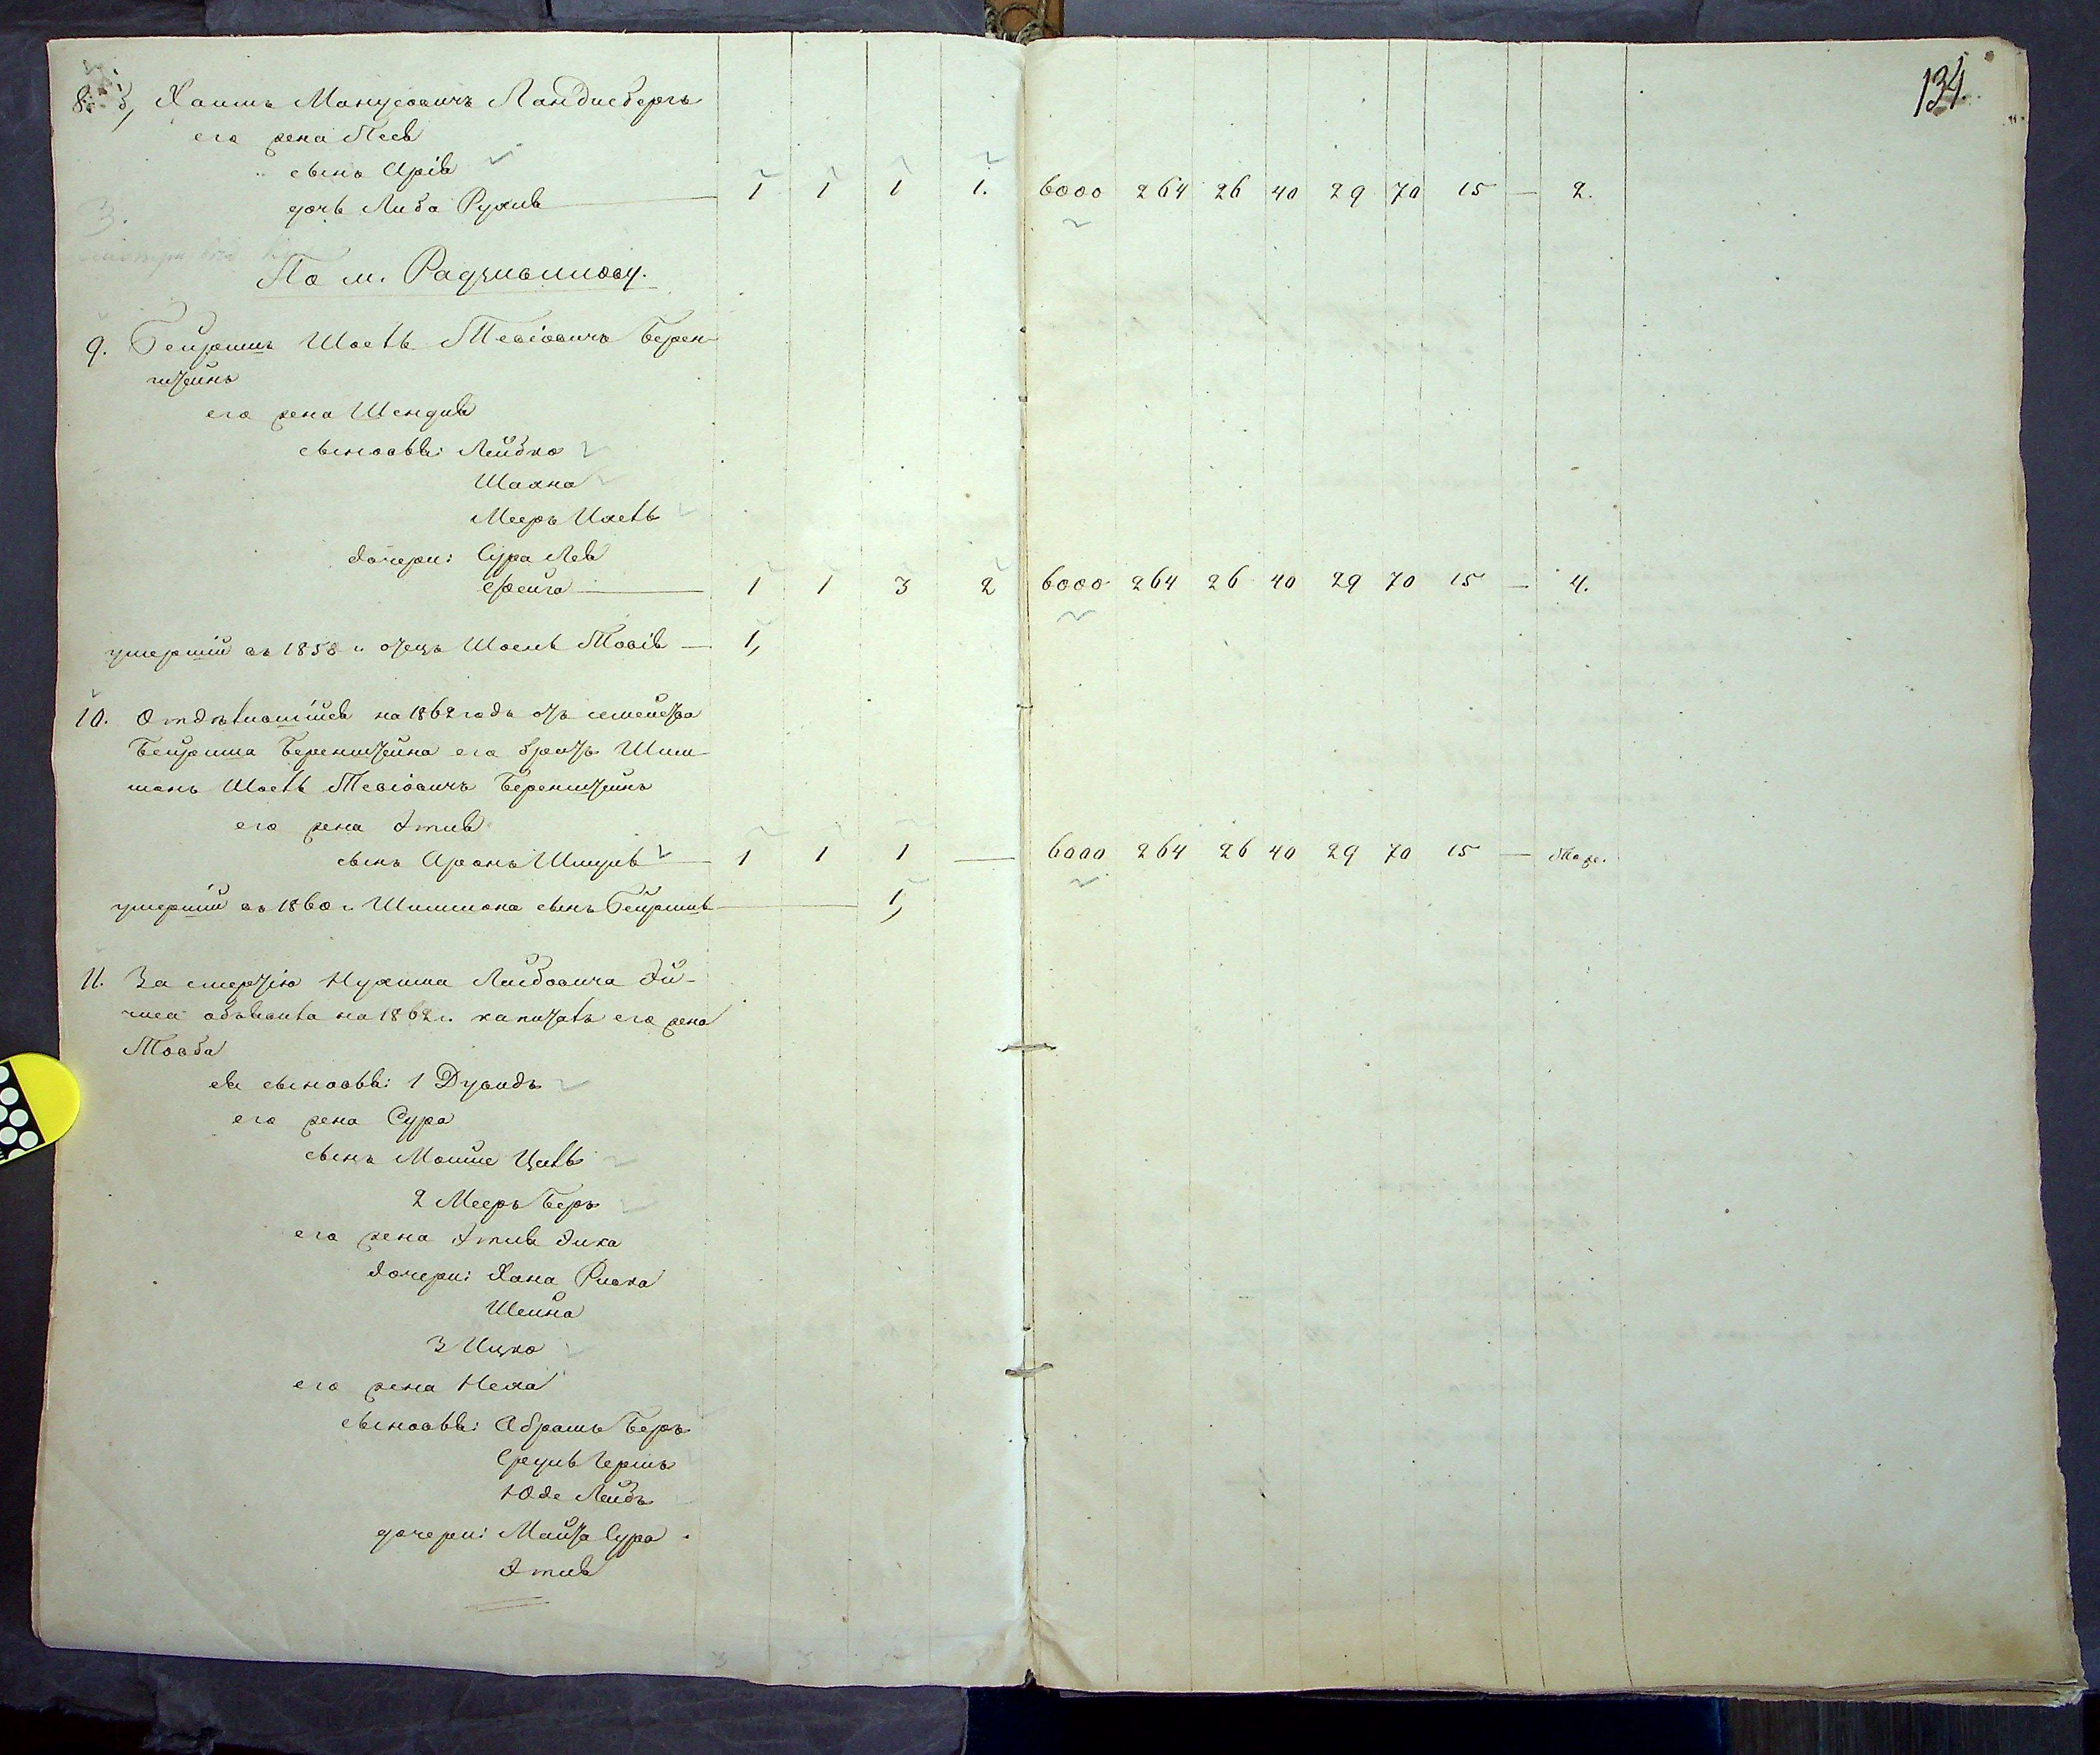 134.
8. 3, Хаимъ Манусовичъ Ландисбергъ
его жена Песя
сынъ Арія
дочь Либа Рухля — 1 1 1 1. 6000 264 26 40 29 70 15 — 2.
3.
По м. Радзивилову.
9. Бейришъ Шоель Тевіовичъ Берен-
штейнъ
его жена Шендля
сыновья: Лейбко
Шахна
Мееръ Иоель
дочери: Сура Лея
Фейга — 1 1 3 2 6000 264 26 40 29 70 15 — 4.
умершій въ 1858 г. отецъ Шоель Товія — 1,
10. Отдѣлившійся на 1862 годъ отъ семейства
Бейриша Беренштейна его братъ Шим-
монъ Шоель Тевіовичъ Беренштейнъ
его жена Этля
сынъ Аронъ Шмуль — 1 1 1 — 6000 264 26 40 29 70 15 — тоже.
умершій въ 1860 г. Шиммона сынъ Бейришъ — 1,
11. За смертію Нухима Лейбовича Эй-
объявила на 1862 г. капиталъ его жена
Товба
ея сыновья: 1 Дувидъ
его жена Сура
сынъ Мошие Цаль
2 Мееръ Беръ
его жена Этля Эйка
дочери: Хана Ривка
Шейна
3 Ицко
его жена Неха
сыновья: Абрамъ Беръ
Сруль Гершъ
Юде Лейбъ
дочери: Манта Сура
Этля